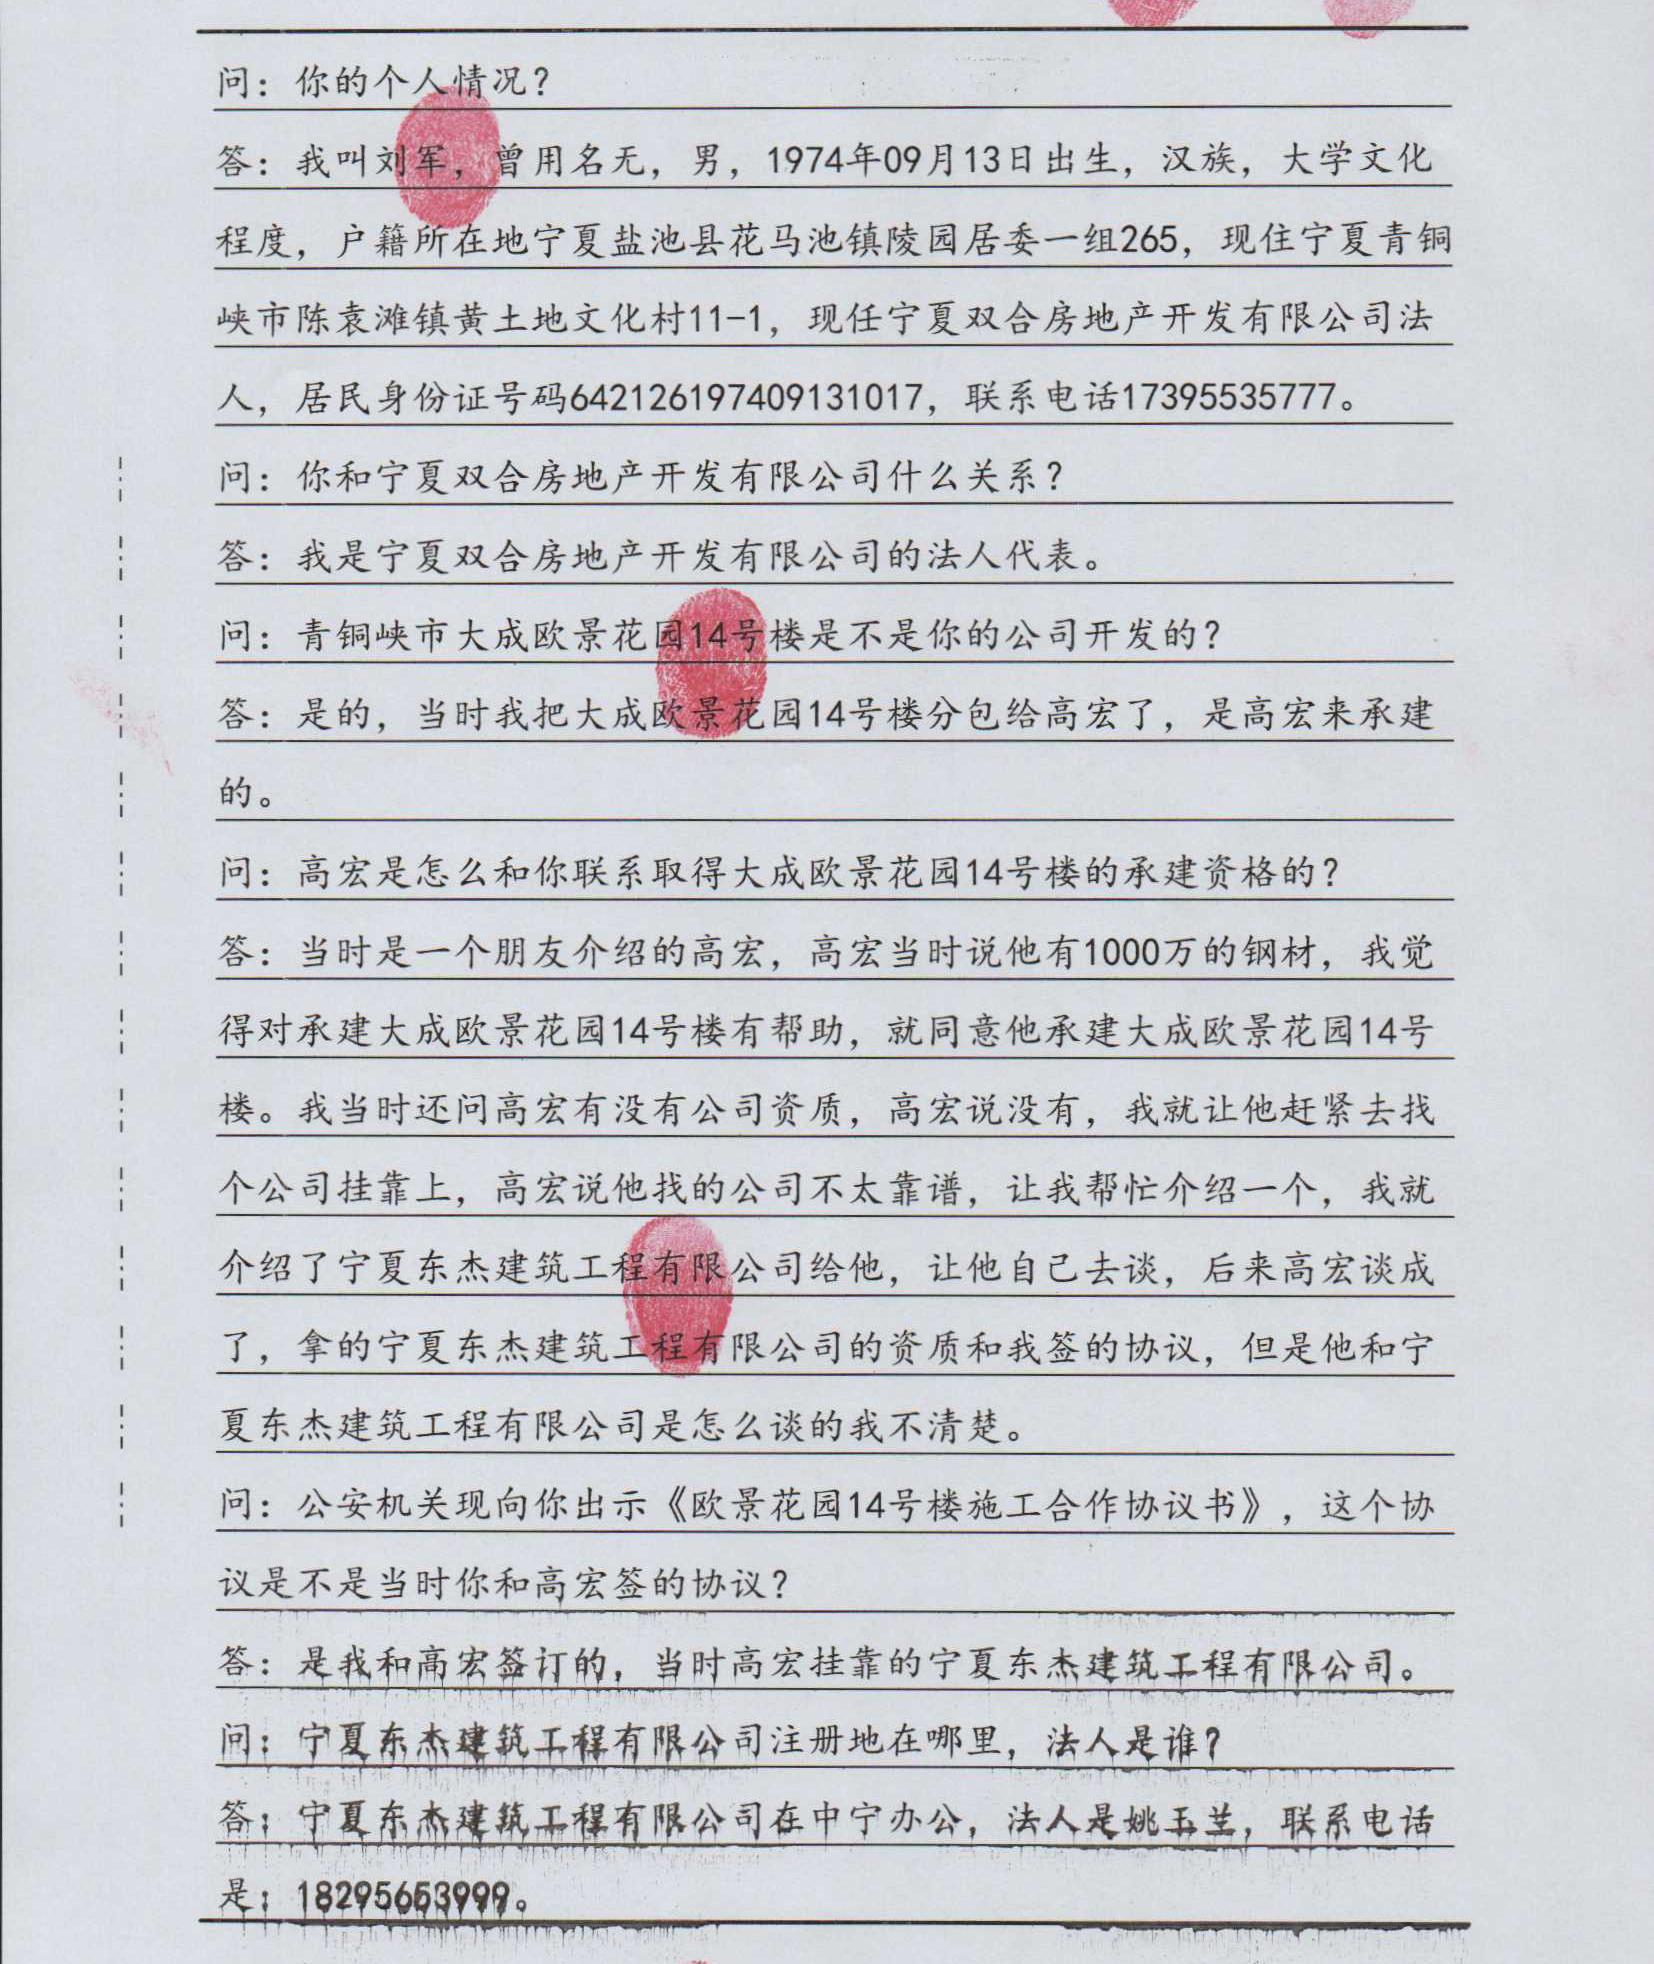 问：你的个人情况？
答：我叫刘军，曾用名无，男，1974年09月13日出生，汉族，大学文化
程度，户籍所在地宁夏盐池县花马池镇陵园居委一组265，现住宁夏青铜
峡市陈袁滩镇黄土地文化村11-1，现任宁夏双合房地产开发有限公司法
人，居民身份证号码642126197409131017，联系电话17395535777。
问：你和宁夏双合房地产开发有限公司什么关系？
答：我是宁夏双合房地产开发有限公司的法人代表。
问：青铜峡市大成欧景花园14号楼是不是你的公司开发的？
答：是的，当时我把大成欧景花园14号楼分包给高宏了，是高宏来承建
的。
问：高宏是怎么和你联系取得大成欧景花园14号楼的承建资格的？
答：当时是一个朋友介绍的高宏，高宏当时说他有1000万的钢材，我觉
得对承建大成欧景花园14号楼有帮助，就同意他承建大成欧景花园14号
楼。我当时还问高宏有没有公司资质，高宏说没有，我就让他赶紧去找
个公司挂靠上，高宏说他找的公司不太靠谱，让我帮忙介绍一个，我就
介绍了宁夏东杰建筑工程有限公司给他，让他自己去谈，后来高宏谈成
了，拿的宁夏东杰建筑工程有限公司的资质和我签的协议，但是他和宁
夏东杰建筑工程有限公司是怎么谈的我不清楚。
问：公安机关现向你出示《欧景花园14号楼施工合作协议书》，这个协
议是不是当时你和高宏签的协议？
答：是我和高宏签订的，当时高宏挂靠的宁夏东杰建筑工程有限公司。
问：宁夏东杰建筑工程有限公司注册地在哪里，法人是谁？
答：宁夏东杰建筑工程有限公司在中宁办公，法人是姚玉兰，联系电话
是：18295653999。